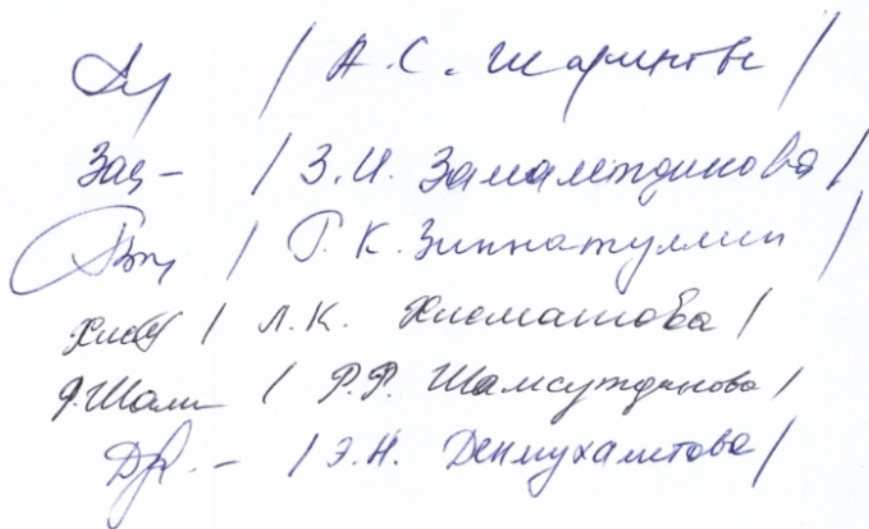 / А.С. Шарипов /
Зац- / З.И. Замалетдинова /
/ Г.К. Зиннатуллин /
/ Л.К. Хисматова /
Р.Шам / Р.Р. Шамсутдинова /
/ Э.Н. Денмухаметова /